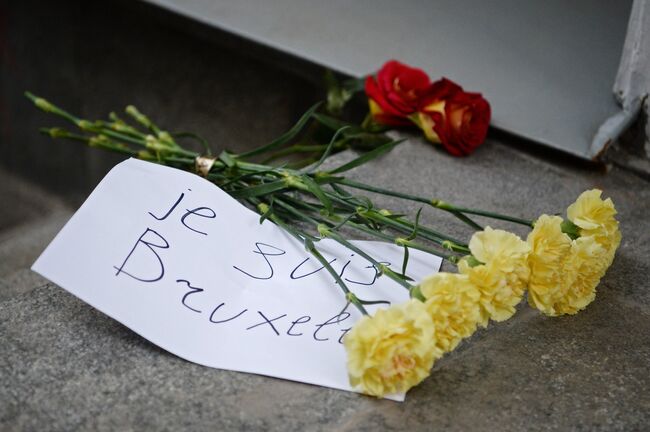 je suis
Bruxelle